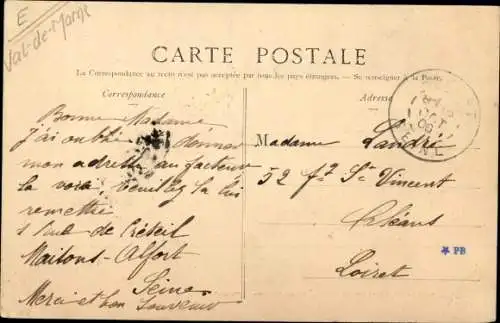 E
Val-de-Marne
CARTE POSTALE
La Correspondance au recto n'est pas acceptée par tous les pays étrangers. — Se renseigner à la Poste.
Correspondance
Adresse
Bonne Madame
J'ai oublié donner
mon adresse au facteur
la voici, veuillez la lui
remettre
de Créteil
Maisons-Alfort
Seine
Merci et bon souvenir
Madame Landré
52 fg St Vincent
Orléans
Loiret
OCT
06
* PB